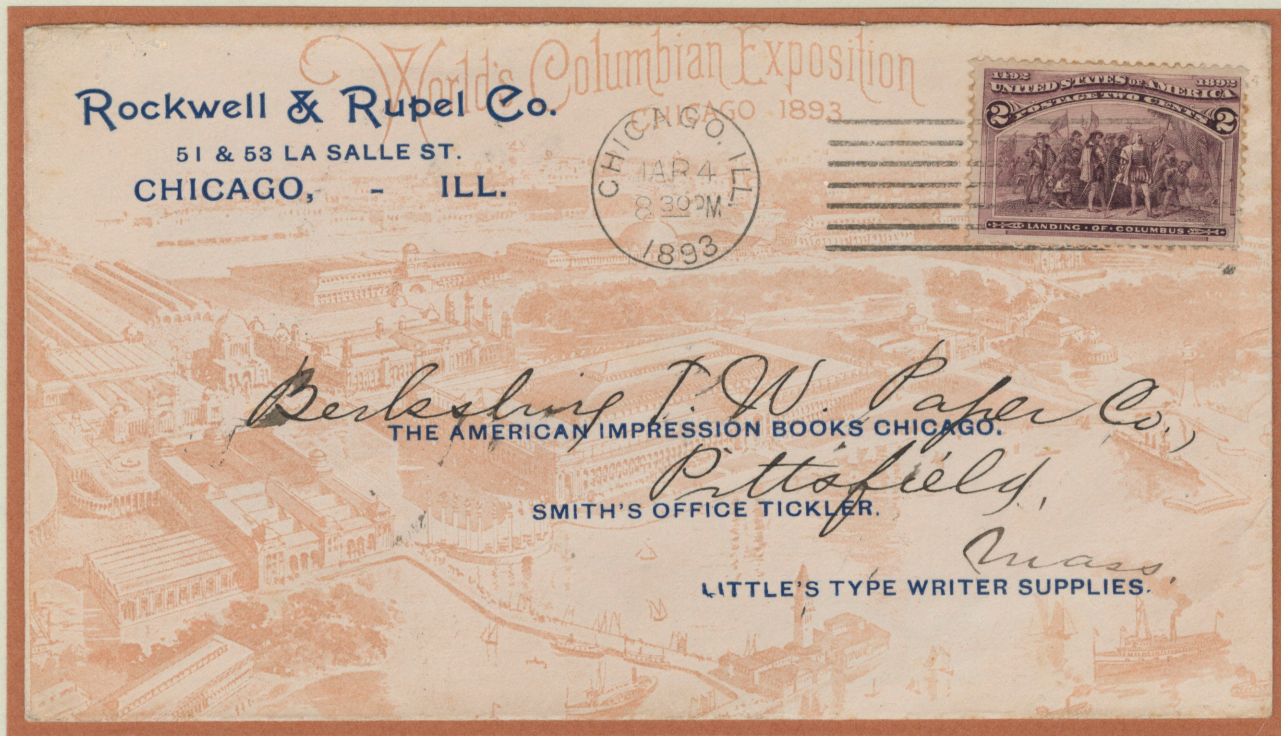 World's Columbian Exposition
CHICAGO 1893
Rockwell & Rupel Co.
51 & 53 LA SALLE ST.
CHICAGO, - ILL.
CHICAGO, ILL.
4
8 30 PM
1893
1492 1892
UNITED STATES OF AMERICA
2 POSTAGE TWO CENTS 2
LANDING OF COLUMBUS
Berkshire T. W. Paper Co.,
THE AMERICAN IMPRESSION BOOKS CHICAGO.
Pittsfield,
SMITH'S OFFICE TICKLER.
Mass.
LITTLE'S TYPE WRITER SUPPLIES.